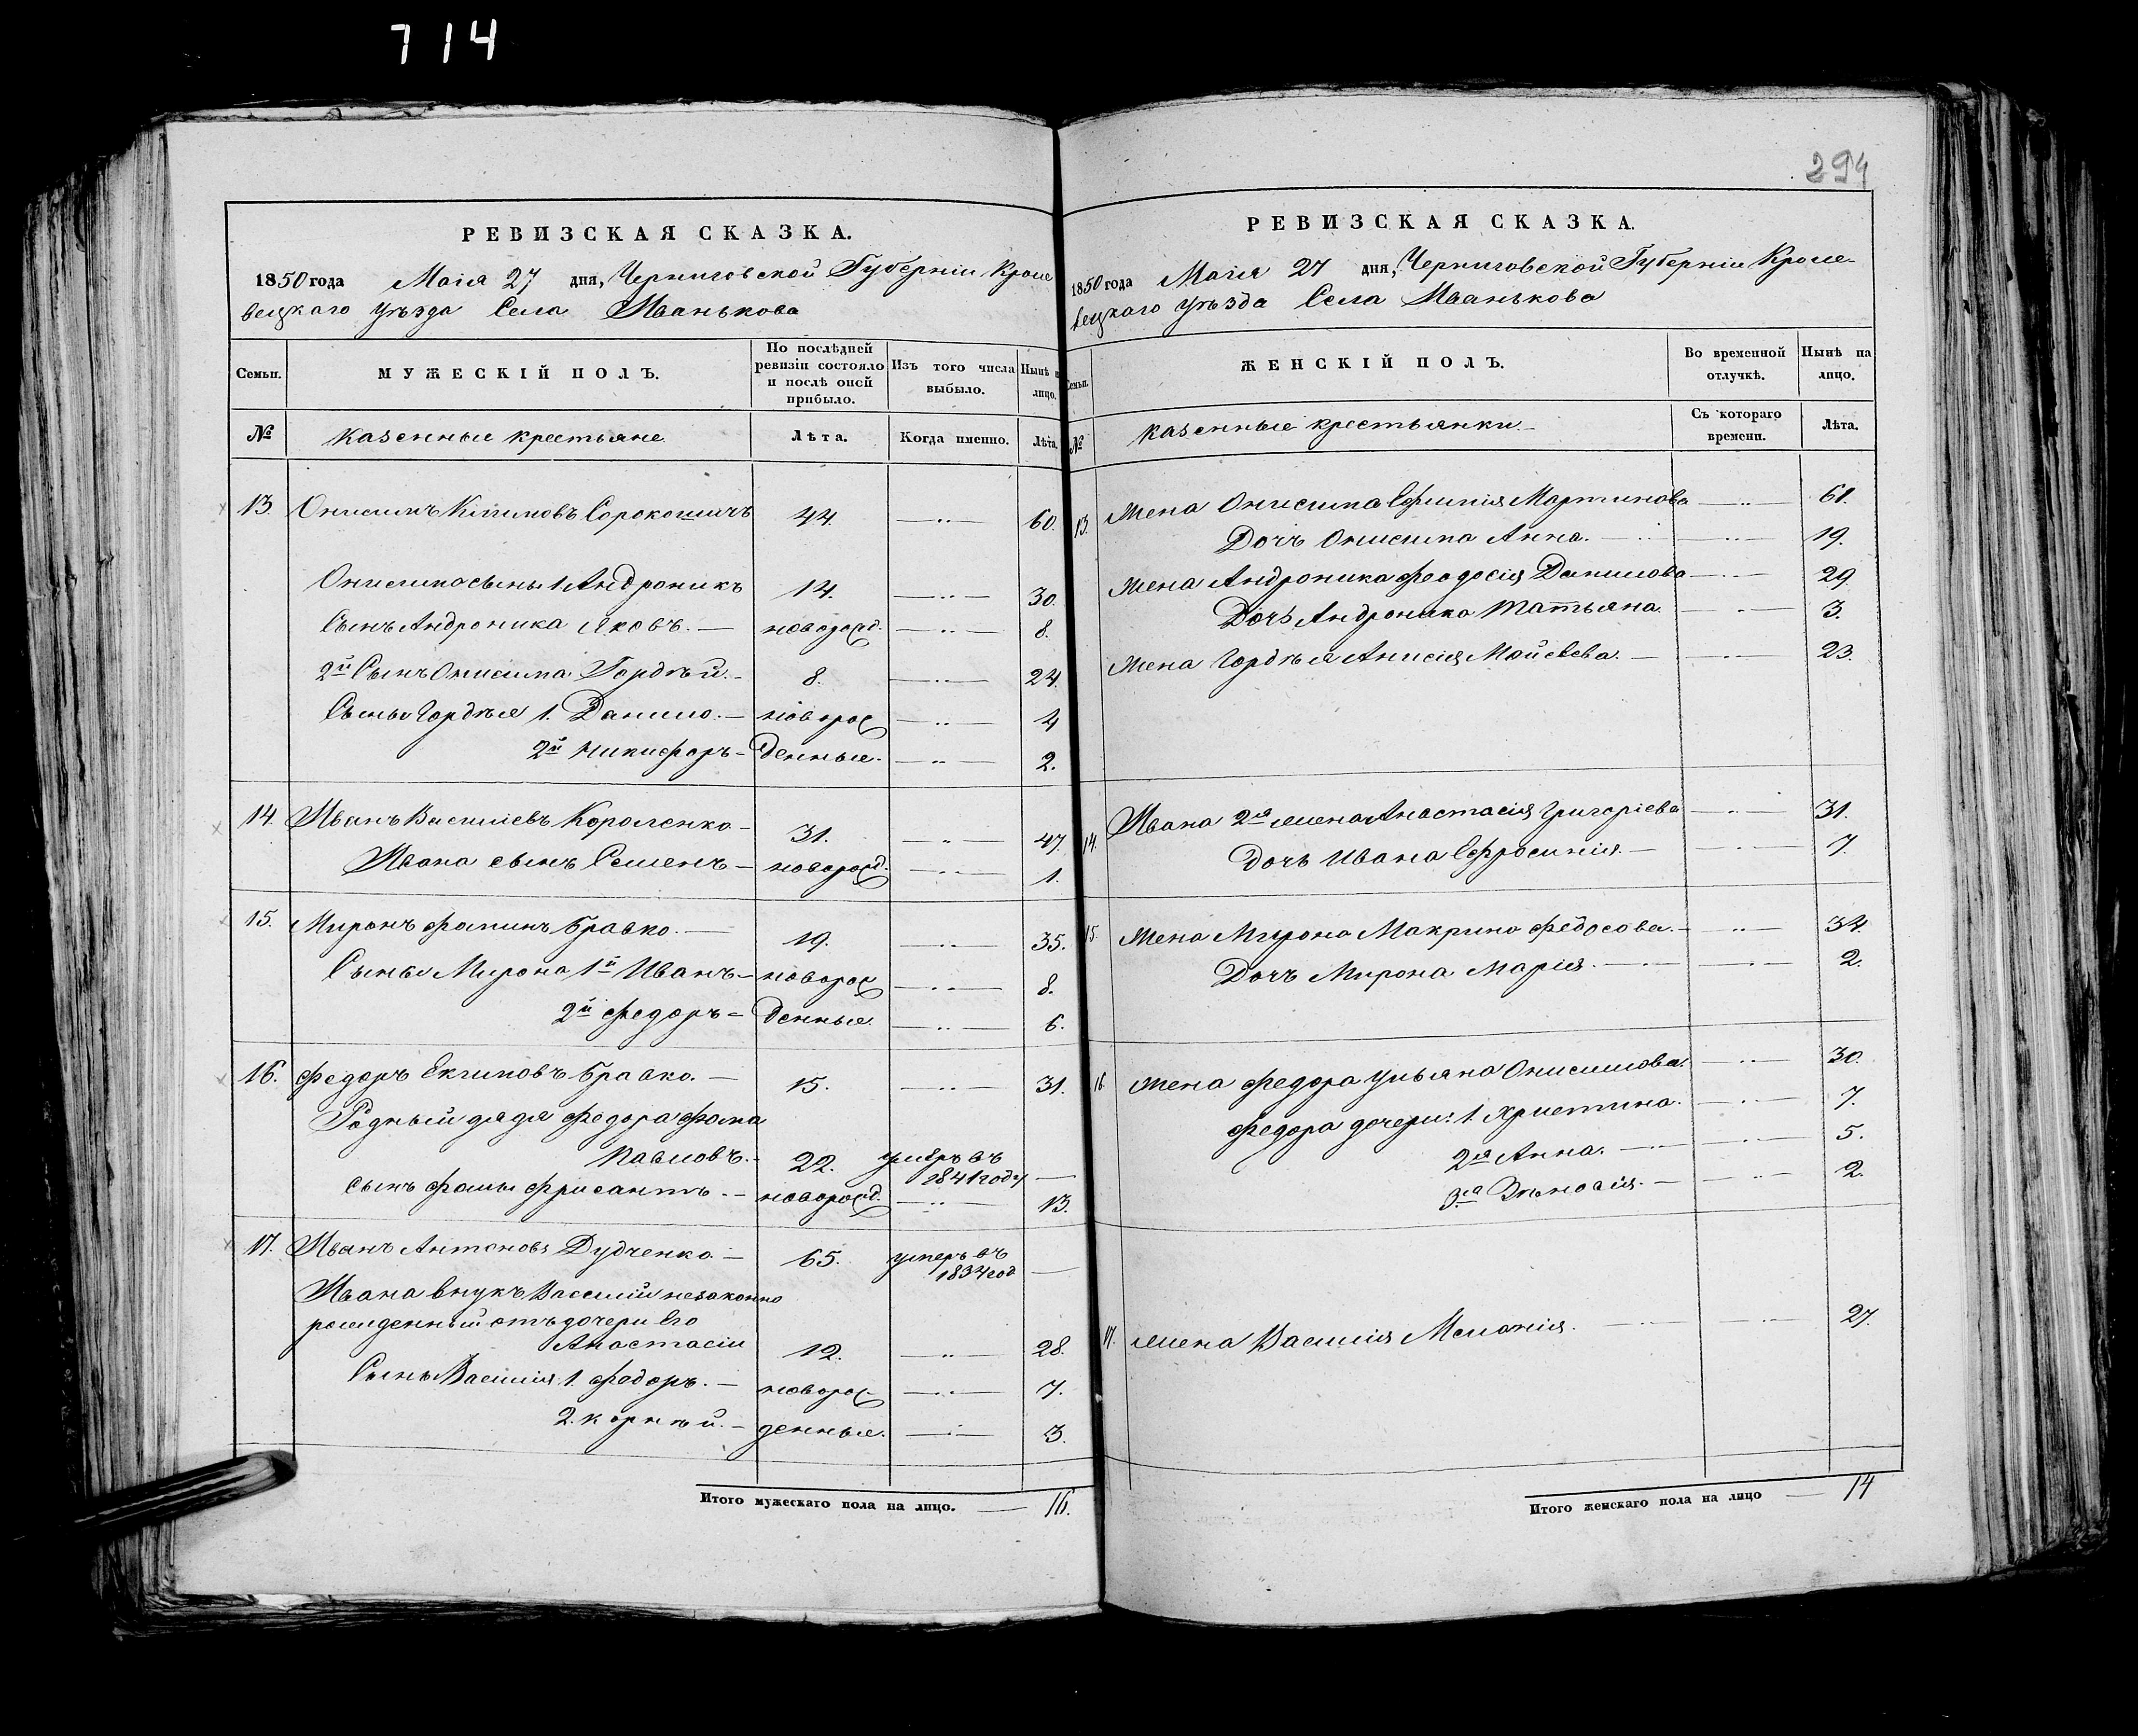 714
294
РЕВИЗСКАЯ СКАЗКА.
1850 года Маія 27 дня, Черниговской Губерніи Кроле
вецкаго уѣзда Села Иванькова
Семьи. МУЖЕСКІЙ ПОЛЪ. По послѣдней ревизіи состояло и послѣ оной прибыло. Изъ того числа выбыло. Нынѣ на лицо.
№ казенные крестьяне Лѣта. Когда именно. Лѣта.
13. Онисимъ 44. 60.
Онисима сыны 1 Андроникъ 14. 30.
Сынъ Андроника Яковъ. новорожд. 8.
2й Сынъ Онисима Гордѣй. 8. 24.
Сыны Гордѣя 1. Данило. новорож 4
2й Никифоръ денные. 2.
14. Иванъ Василіевъ Короленко 31. 47.
Ивана сынъ Семенъ новорожд. 1.
15. Миронъ Фоминъ Бравко. 19. 35.
Сыны Мирона 1й Иванъ новорож 8.
2й Федоръ денные. 6.
16. Федоръ Екимовъ Бравко. 15. 31.
Родный дядя Федора Фома
Павловъ. 22. умеръ въ
1841 году
сынъ Фомы новорожд. 13.
17. Иванъ Антоновъ Дудченко 65. умеръ въ
1834 год
Ивана внукъ Василій незаконно
рожденный отъ дочери Его
Анастасіи 12. 28.
Сыны Василія 1. Федоръ. новорож 7.
2. Корнѣй. денные. 3.
Итого мужескаго пола на лицо. 16.
РЕВИЗСКАЯ СКАЗКА.
1850 года Маія 27 дня, Черниговской Губерніи Кроле
вецкаго уѣзда Села Иванькова
Семьи. ЖЕНСКІЙ ПОЛЪ. Во временной отлучкѣ. Нынѣ на лицо.
№ казенные крестьянки Съ котораго времени. Лѣта.
13. Жена Онисима Ефимія Мартинова 61.
Дочь Онисима Анна. 19.
Жена Андроника Феодосія Данилова 29.
Дочь Андроника Татьяна. 3.
Жена Гордѣя Анисія Мойсѣева. 23.
14. Ивана 2я жена Анастасія Григоріева 31.
Дочь Ивана Ефросинія. 7.
15. Жена Мирона Макрина Федосова. 34.
Дочь Мирона Марія. 2.
16. Жена Федора Ульяна Онисимова. 30.
Федора дочери: 1. Христина. 7.
2я Анна. 5.
3я Зѣновія. 2.
17. жена Василія Меланія. 27.
Итого женскаго пола на лицо 14